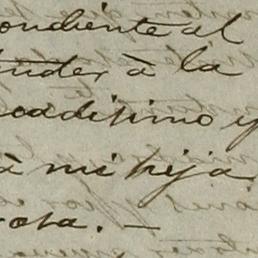 ondiente al
ender à la
cadisimo y
à mi hija
osa. —